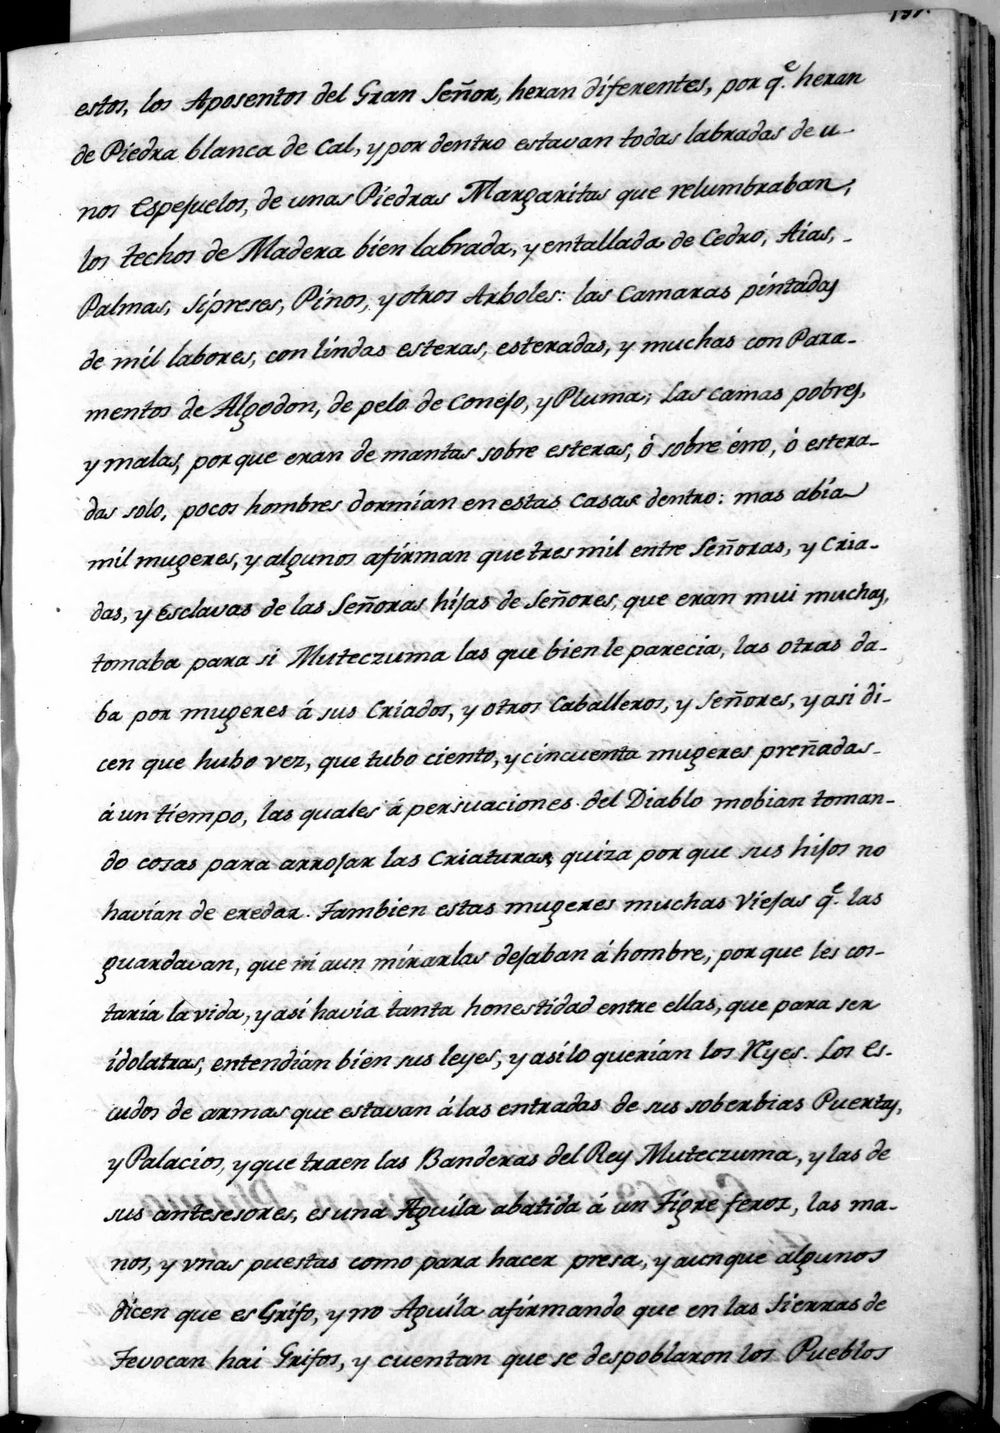 estos, los Aposentos del Gran Señor, heran diferentes, por q.e heran
de Piedra blanca de Cal, y por dentro estavan todas labradas de u-
nos Espejuelos, de unas Piedras Margaritas que relumbraban,
los techos de Madera bien labrada, y entallada de Cedro, Aias,-
Palmas, Sipreses, Pinos, y otros Arboles: las Camaras pintadas
de mil labores, con lindas esteras, esteradas, y muchas con Para-
mentos de Algodon, de pelo de Conejo, y Pluma; las camas pobres,
y malas, por que eran de mantas sobre esteras, ó sobre éno, ó estera-
das solo, pocos hombres dormian en estas Casas dentro: mas abia
mil mugeres, y algunos afirman que tres mil entre Señoras, y Cria-
das, y Esclavas de las Señoras hijas de Señores, que eran mui muchas,
tomaba para si Muteczuma las que bien le parecia, las otras da-
ba por mugeres á sus Criados, y otros Caballeros, y Señores, y asi di-
cen que hubo vez, que tubo ciento, y cincuenta mugeres preñadas-
á un tiempo, las quales á persuaciones del Diablo mobian toman-
do cosas para arrojar las Criaturas, quiza por que sus hijos no
havian de eredar. Tambien estas mugeres muchas Viejas q.e las
guardavan, que ni aun mirarlas dejaban á hombre, por que les cos-
taria la vida, y asi havia tanta honestidad entre ellas, que para ser
idolatras, entendian bien sus leyes, y asi lo querian los Reyes. Los Es-
cudos de armas que estavan á las entradas de sus soberbias Puertas,
y Palacios, y que traen las Banderas del Rey Muteczuma, y las de
sus antesesores, es una Aguila abatida á un Tigre feroz, las ma-
nos, y vñas puestas como para hacer presa, y aunque algunos
dicen que es Grifo, y no Aguila afirmando que en las Sierras de
Tevocan hai Grifos, y cuentan que se despoblaron los Pueblos